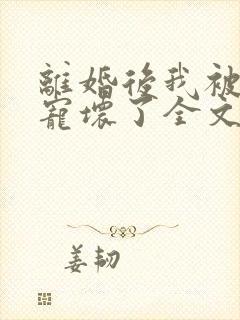 離婚後我被
寵壞了全文
姜韌